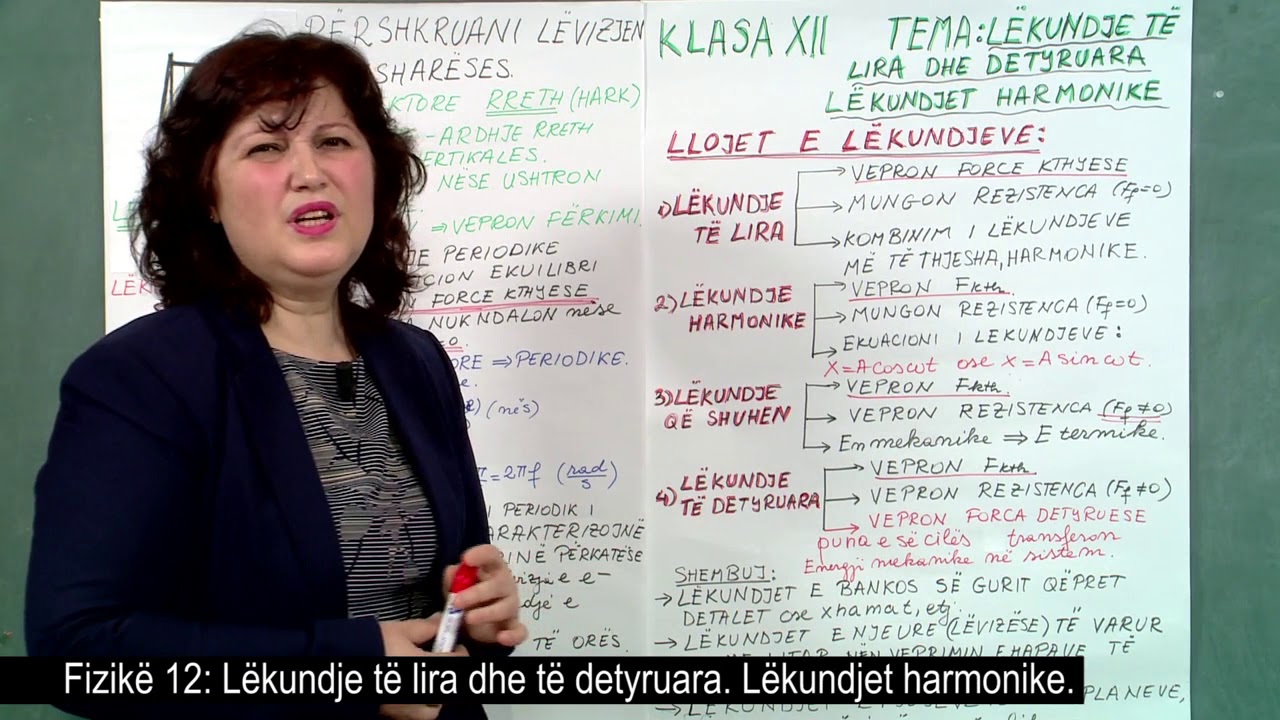 PËRSHKRUANI LËVIZJEN
SHARËSES.
KTORE RRETH (HARK)
-ARDHJE RRETH
ERTIKALES.
NËSE USHTRON
⇒ VEPRON FËRKIMI.
JE PERIODIKE
CION EKUILIBRI
LËK
FORCE KTHYESE
NUK NDALON nëse
ORE ⇒ PERIODIKE.
(në s)
= 2πf (rad/s)
I PERIODIK I
ARAKTERIZOJNË
RINË PËRKATËSE
TË ORËS.
KLASA XII TEMA: LËKUNDJE TË
LIRA DHE DETYRUARA
LËKUNDJET HARMONIKE
LLOJET E LËKUNDJEVE:
1) LËKUNDJE TË LIRA
→ VEPRON FORCE KTHYESE
→ MUNGON REZISTENCA (Ff=0)
→ KOMBINIM I LËKUNDJEVE
MË TË THJESHA, HARMONIKE.
2) LËKUNDJE HARMONIKE
→ VEPRON Fkth.
→ MUNGON REZISTENCA (Ff=0)
→ EKUACIONI I LEKUNDJEVE:
X=Acosωt ose X=Asinωt.
3) LËKUNDJE QË SHUHEN
→ VEPRON Fkth.
→ VEPRON REZISTENCA (Ff≠0)
→ En mekanike ⇒ E termike.
4) LËKUNDJE TË DETYRUARA
→ VEPRON Fkth.
→ VEPRON REZISTENCA (Ff≠0)
→ VEPRON FORCA DETYRUESE
puna e së cilës transferon
Energji mekanike në sistem.
SHEMBUJ:
→ LËKUNDJET E BANKOS SË GURIT QËPRET
DETALET ose xhamat, etj.
→ LËKUNDJET E NJEURE (LËVIZËSE) TË VARUR
NËN VEPRIMIN E HAPAVE TË
Fizikë 12: Lëkundje të lira dhe të detyruara. Lëkundjet harmonike.
PLANEVE,